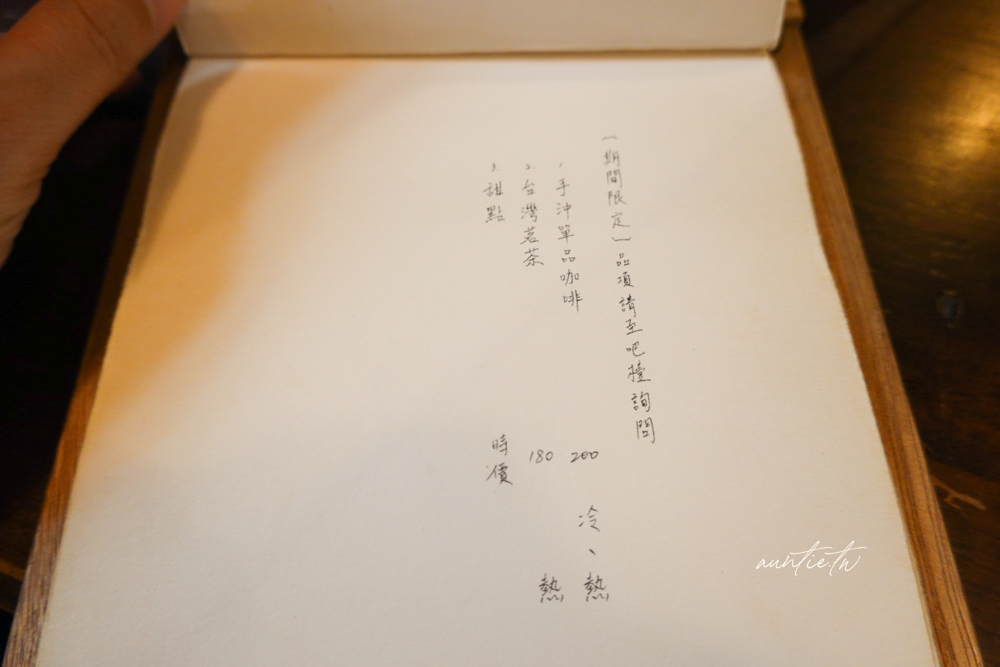 ︹期間限定︺品項請至吧檯詢問
1.手沖單品咖啡 200 冷、熱
2.台灣茗茶 180 熱
3.甜點 時價
auntie.tw